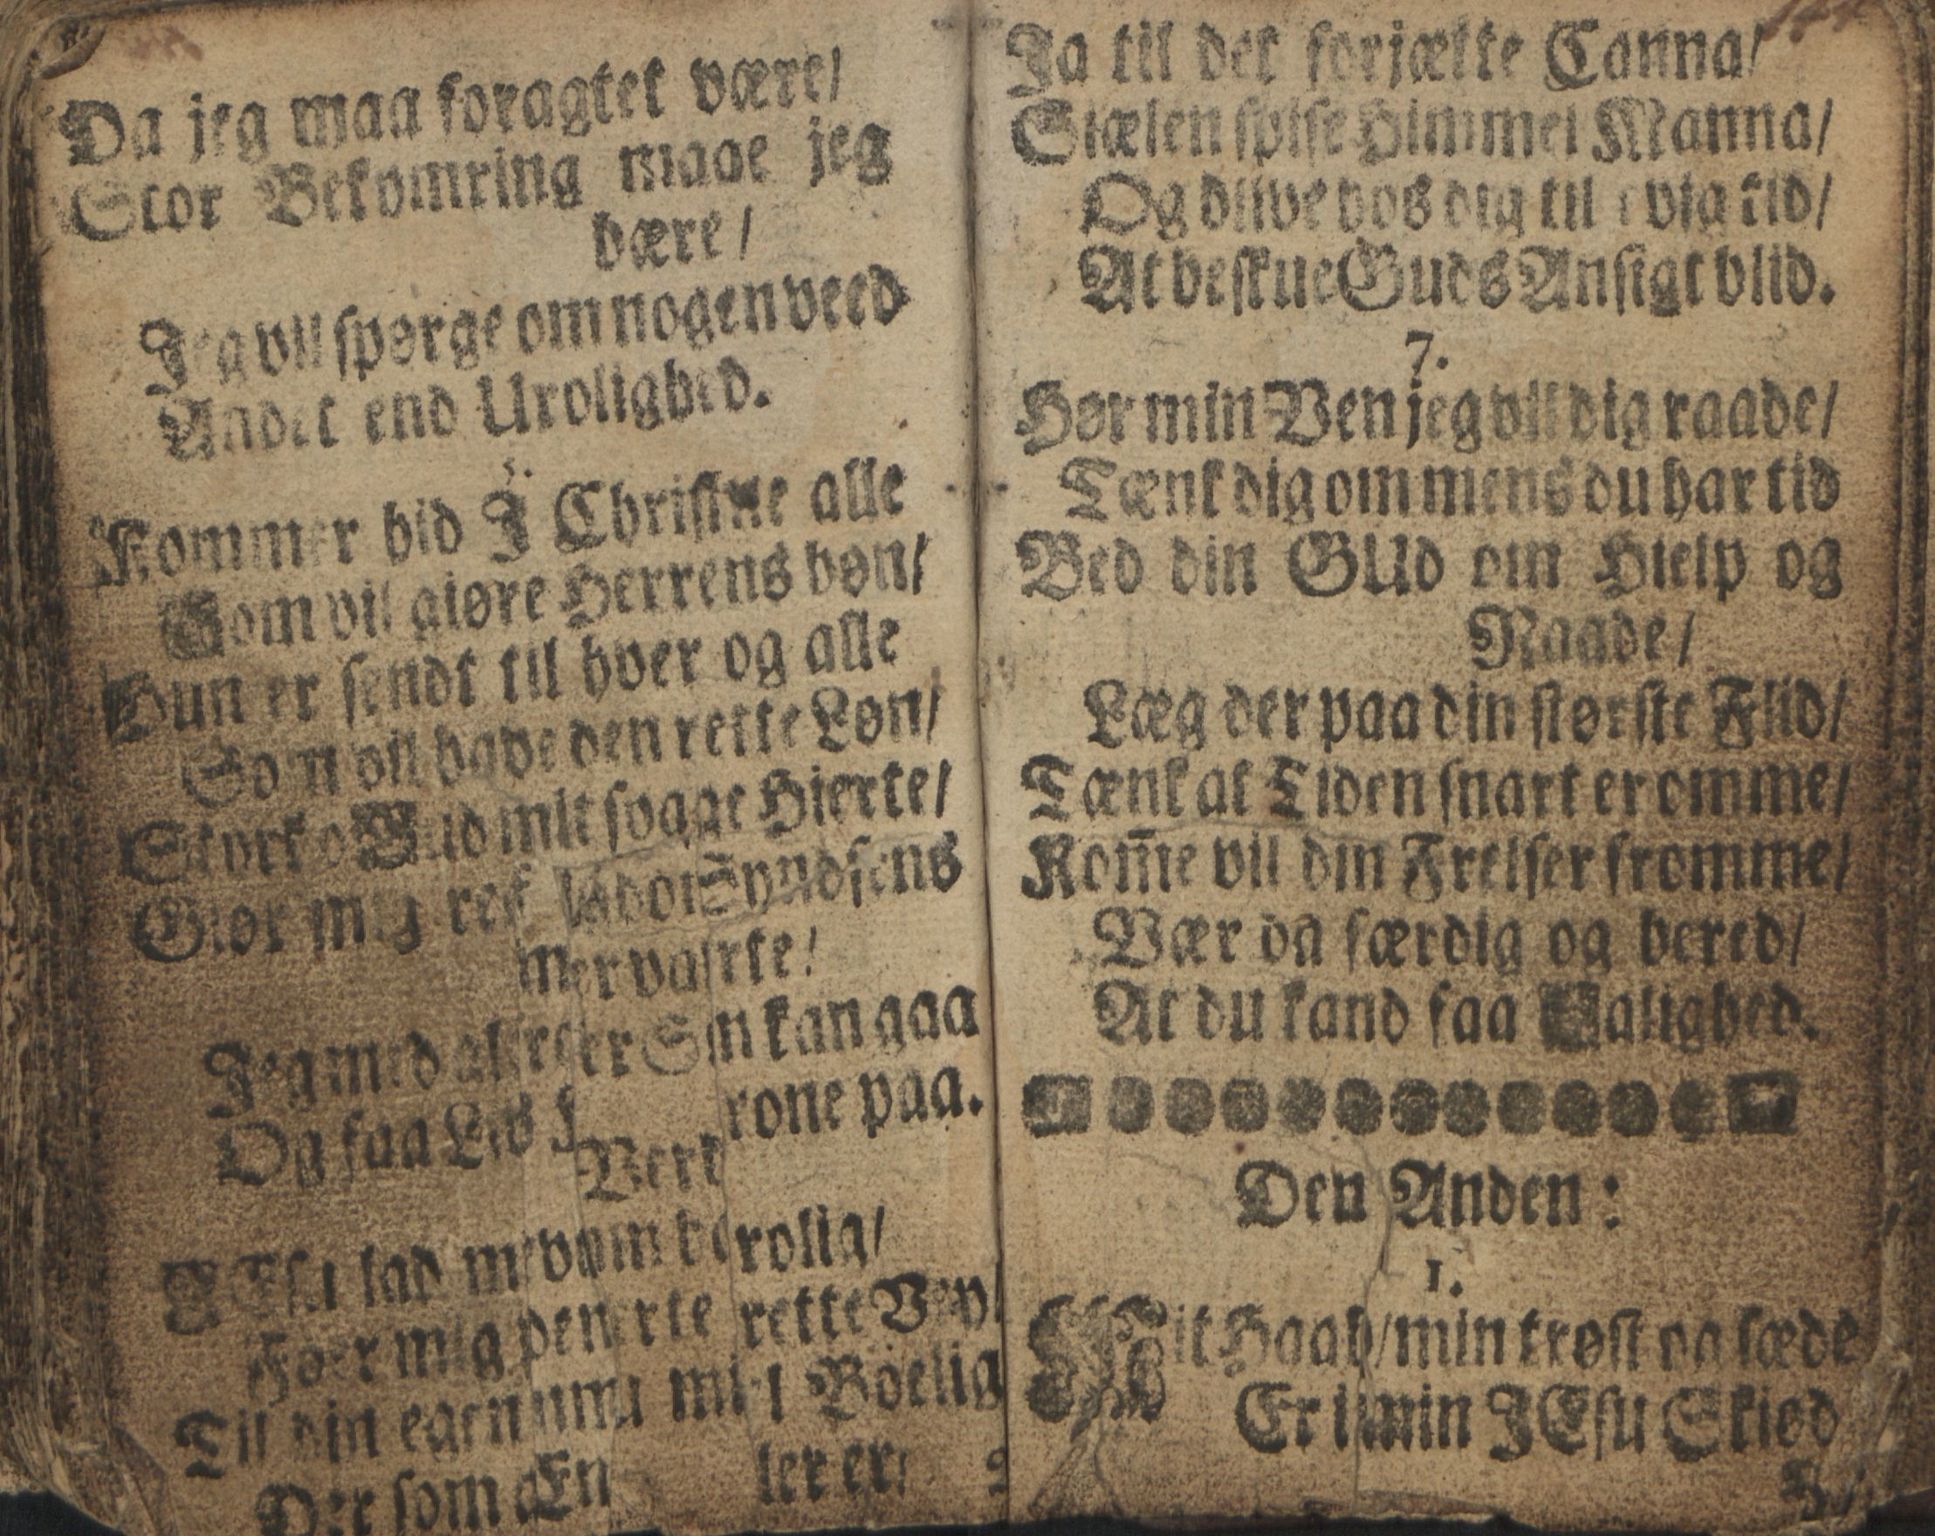 Da jeg maa foragtet være/
Stor Bekomring maae jeg
bære/
Jeg vil spørge om nogen veed
Andet end Urolighed.
5.
Kommer hid I Christne alle
Som vil giøre Herrens bøn/
Hun er sendt til hver og alle
Som vil have den rette Løn/
Styrk o Gud mit svage Hierte/
Giør mig Syndsens
Jeg med Sin kan gaa
Og faa rone paa.
Vers
JEsu lad rolig/
Føer mig den rette Vey/
Til din egen Boelig
Der som ler er/
Ja til det forjætte Canna/
Siælen spise Himmel Manna/
Og blive hos dig til evig tid/
At beskue Guds Ansigt blid.
7.
Hør min Ven jeg vil dig raade/
Tænk dig om mens du har tid
Bed din GUd om Hielp og
Naade/
Læg der paa din største Flid/
Tænk at Tiden snart er omme/
Kom̄e vil din Frelser fromme/
Vær da færdig og bered/
At du kand faa Salighed.
Den Anden:
1.
Mit Haab/ min trøst og sæde
Er i min JEsu Skiød